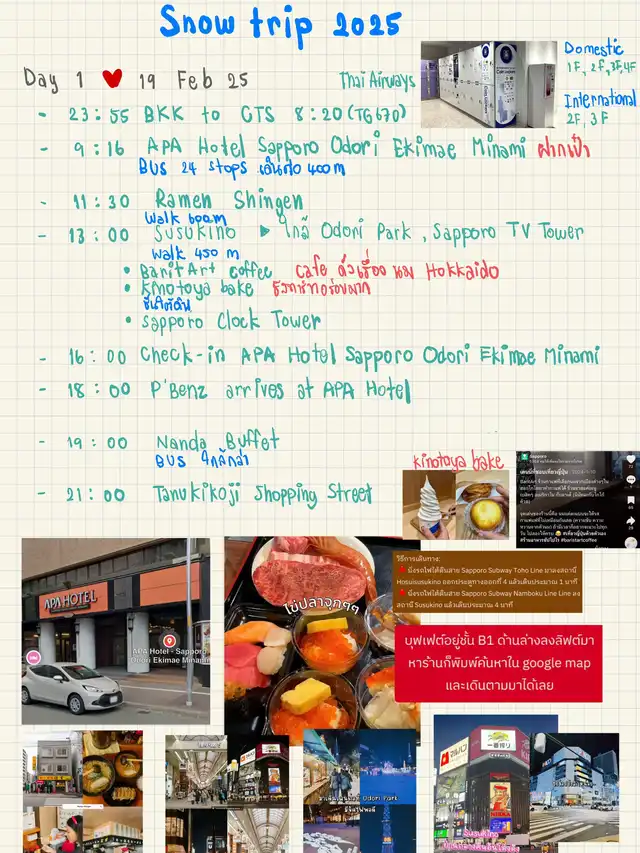 Snow trip 2025
Domestic
1F, 2F, 3F, 4F
International
2F, 3F
Day 1 ❤ 19 Feb 25
Thai Airways
- 23:55 BKK to CTS 8:20 (TG670)
- 9:16 APA Hotel Sapporo Odori Ekimae Minami ฝากเป๋า
BUS 24 stops เดินต่อ 400 m
- 11:30 Ramen Shingen
Walk 600m
- 13:00 SUSUKINO ▶ ใกล้ Odori Park, Sapporo TV Tower
Walk 450 m
• BaristArt coffee cafe ตัวเรื่อง นม Hokkaido
• Kinotoya bake ชีสทาร์ทอร่อยมาก
ชั้นใต้ดิน
• Sapporo Clock Tower
- 16:00 Check-in APA Hotel Sapporo Odori Ekimae Minami
- 18:00 P'Benz arrives at APA Hotel
- 19:00 Nanda Buffet
BUS ใกล้กว่า
- 21:00 Tanukikoji Shopping Street
kinotoya bake
Sapporo
APA HOTEL
APA Hotel - Sapporo
Odori Ekimae Minami
ไข่ปลาจุกๆๆ
วิธีการเดินทาง:
นั่งรถไฟใต้ดินสาย Sapporo Subway Toho Line มาลงสถานี
Hosuisusukino ออกประตูทางออกที่ 4 แล้วเดินประมาณ 1 นาที
นั่งรถไฟใต้ดินสาย Sapporo Subway Namboku Line Line ลง
สถานี Susukino แล้วเดินประมาณ 4 นาที
บุฟเฟต์อยู่ชั้น B1 ด้านล่างลงลิฟต์มา
หาร้านก็พิมพ์ค้นหาใน google map
และเดินตามมาได้เลย
Odori Park
マルハン
一番搾り
NIKKA